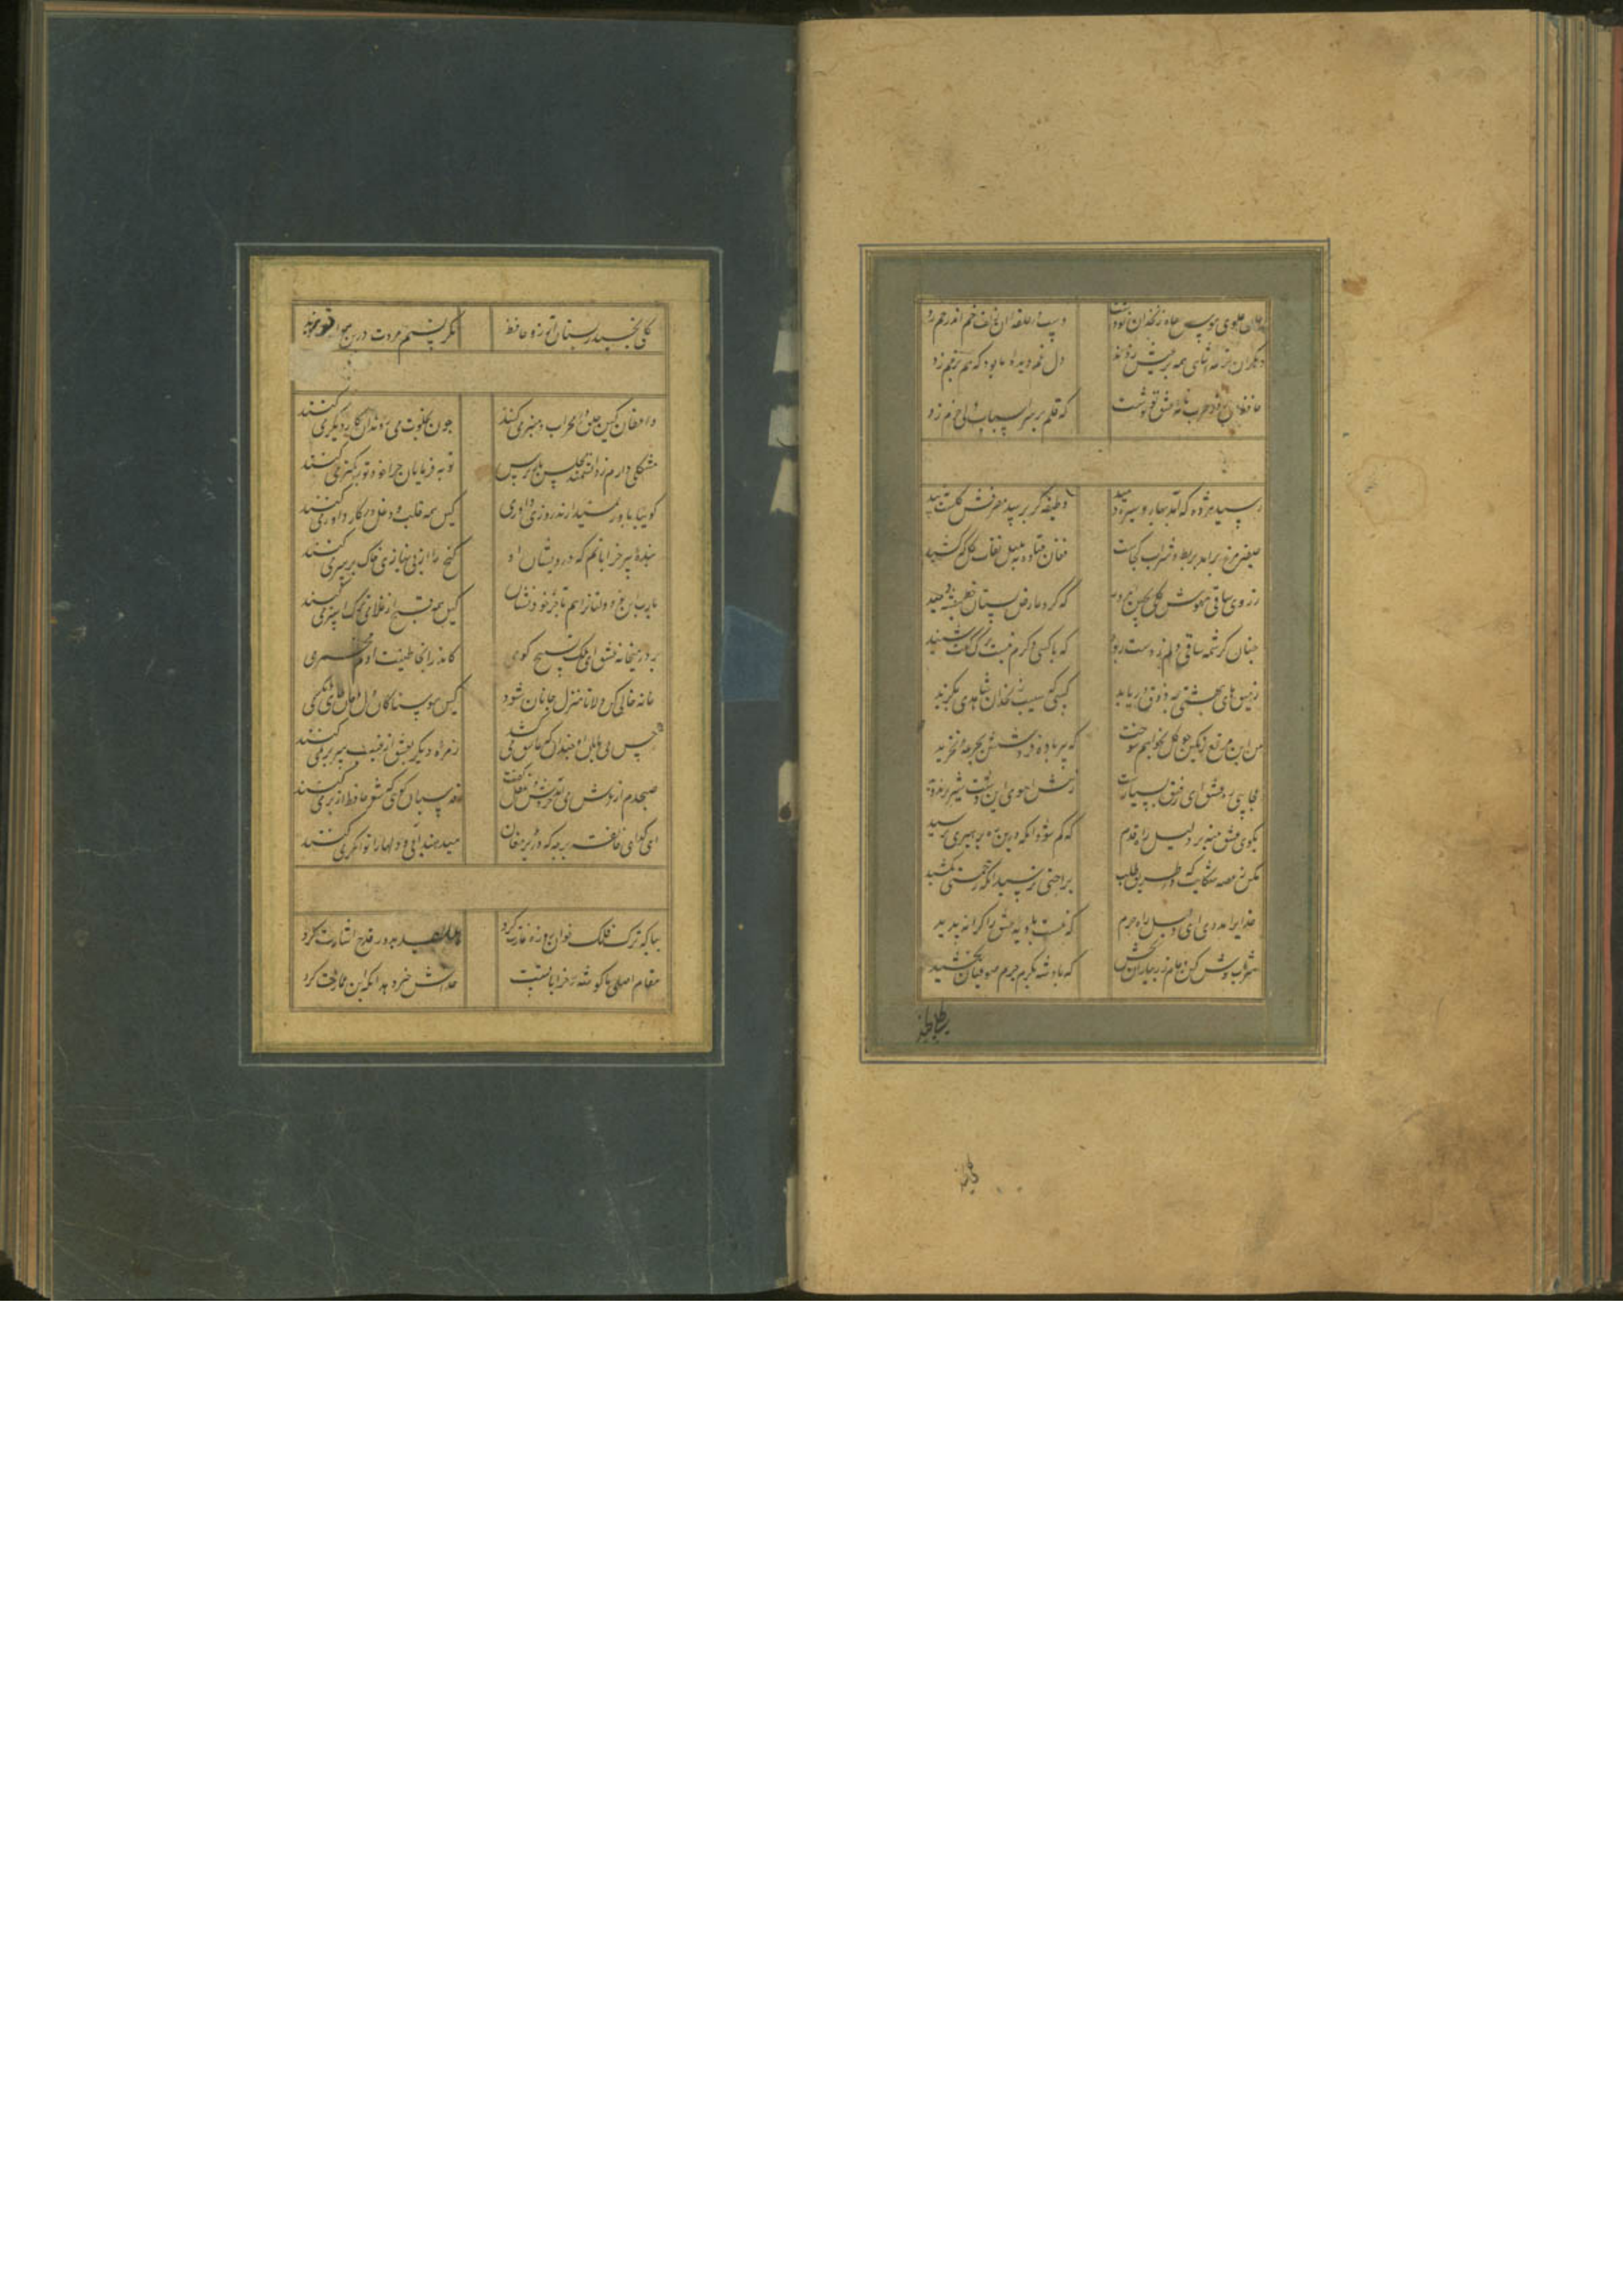 جان علوی هوس چاه زنخدان تو داشت دست در حلقه آن زلف خم اندر خم زد
دیکران قرعه همه بر عیش زدند دل غم دیده ما بود که هم بر غم زد
حافظ آن روز طرب نامه عشق تو نوشت که قلم بر سر اسباب دل خرم زد
رسید مژده که آمد بهار و سبزه دمید وظیفه کر برسد مصرفش کلست و نبید
صفیر مرغ برامد بط شراب کجاست فغان فتاد به بلبل نقاب کل که کشید
ز روی ساقی مهوش کلی بچین امروز که کرد عارض بستان خط بنفشه دمید
چنان کرشمه ساقی دلم ز دست ربود که با کسی دکرم نیست برک کفت و شنید
ز میوهای بهشتی چه ذوق دریابد کسی که سیب زنخدان شاهدی نکزید
من این مرقع رنکین چو کل بخواهم سوخت که پیر باده فروشش بجرعه نخرید
عجایب ره عشق ای رفیق بسیارست ز پیش اهوی این دشت شیر نر برمید
بکوی عشق منه بی دلیل راه قدم که کم شد انکه درین ره برهبری نرسید
مکن ز غصه شکایت که در طریق طلب براحتی نرسید انکه زحمتی نکشید
خدایرا مددی ای دلیل راه حرم که نیست بادیه عشق را کرانه پدید
شراب نوش کن و جام زر بیاران بخش که پادشه بکرم جرم صوفیان بخشید
کلی نچید ز بستان آرزو حافظ مکر نسیم مروت درین هوا نوزید
واعظان کین جلوه در محراب و منبر می کنند چون بخلوت می روند آن کار دیکر می کنند
مشکلی دارم ز دانشمند مجلس باز پرس توبه فرمایان چرا خود توبه کمتر می کنند
کوییا باور نمیدارند روز داوری کین همه قلب و دغل در کار داور می کنند
بنده پیر خراباتم که درویشان او کنج را از بی نیازی خاک بر سر می کنند
یارب این نو دولتانرا هم با خر خود نشان کین همه از غلام ترک و استر می کنند
بر در میخانه عشق ای ملک تسبیح کوی کاندر انجا طینت ادم مخمر می
خانه خالی کن دلا تا منزل جانان شود کین هوسناکان دل و جان جای دیکر می
حسن بی پایان او چندان که عاشق می کشد زمره دیکر بعشق از غیب سر بر می کنند
صبحدم از عرش می آمد خروشی عقل کفت قدسیان کوی که شعر حافظ از بر می کنند
ای کدای خانقه برجه که در دیر مغان میدهند آبی و دلها را توانکر می کنند
بیا که ترک فلک خوان روزه غارت کرد هلال عید بدور قدح اشارت کرد
مقام اصلی ما کوشه خراباتست خداش خیر دهد انکه این عمارت کرد